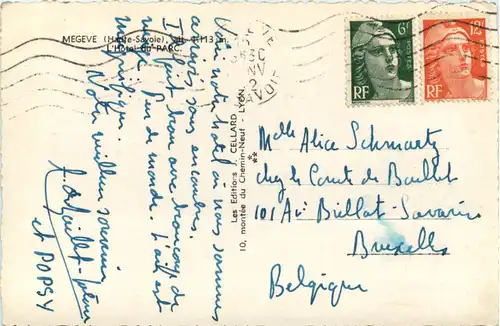 MEGEVE (Haute-Savoie), alt. 1.113 m.
L'Hôtel du PARC.
Voici notre hôtel où nous sommes
arrivés sans encombre.
Il fait bon avec beaucoup de
neige. Peu de monde. L'air est
magnifique.
Notre meilleur souvenir
et POPSY
Les Editions J. CELLARD
10, montée du Chemin-Neuf - LYON.
6F
RF
12F
RF
POSTES
Melle Alice Schmartz
chez le Comte de Baillet
101 Av. Brillat-Savarin
Bruxelles
Belgique